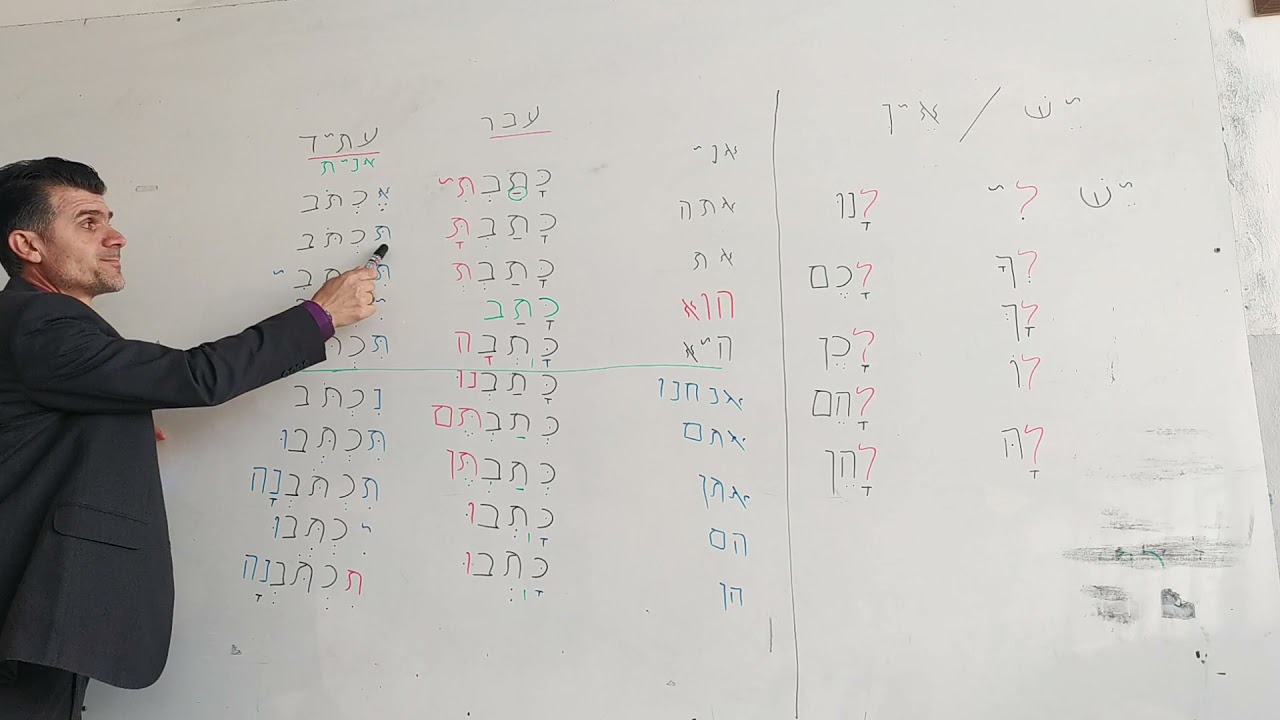 יֵשׁ / אֵין
יֵשׁ לִי לָנוּ
לְךָ לָכֶם
לָךְ לָכֶן
לוֹ לָהֶם
לָהּ לָהֶן
עבר עתיד
אנית
אני כָּתַבְתִּי אֶכְתֹּב
אתה כָּתַבְתָּ תִּכְתֹּב
את כָּתַבְתְּ
הוא כָּתַב
היא כָּתְבָה
אנחנו כָּתַבְנוּ נִכְתֹּב
אתם כְּתַבְתֶּם תִּכְתְּבוּ
אתן כְּתַבְתֶּן תִּכְתֹּבְנָה
הם כָּתְבוּ יִכְתְּבוּ
הן כָּתְבוּ תִּכְתֹּבְנָה